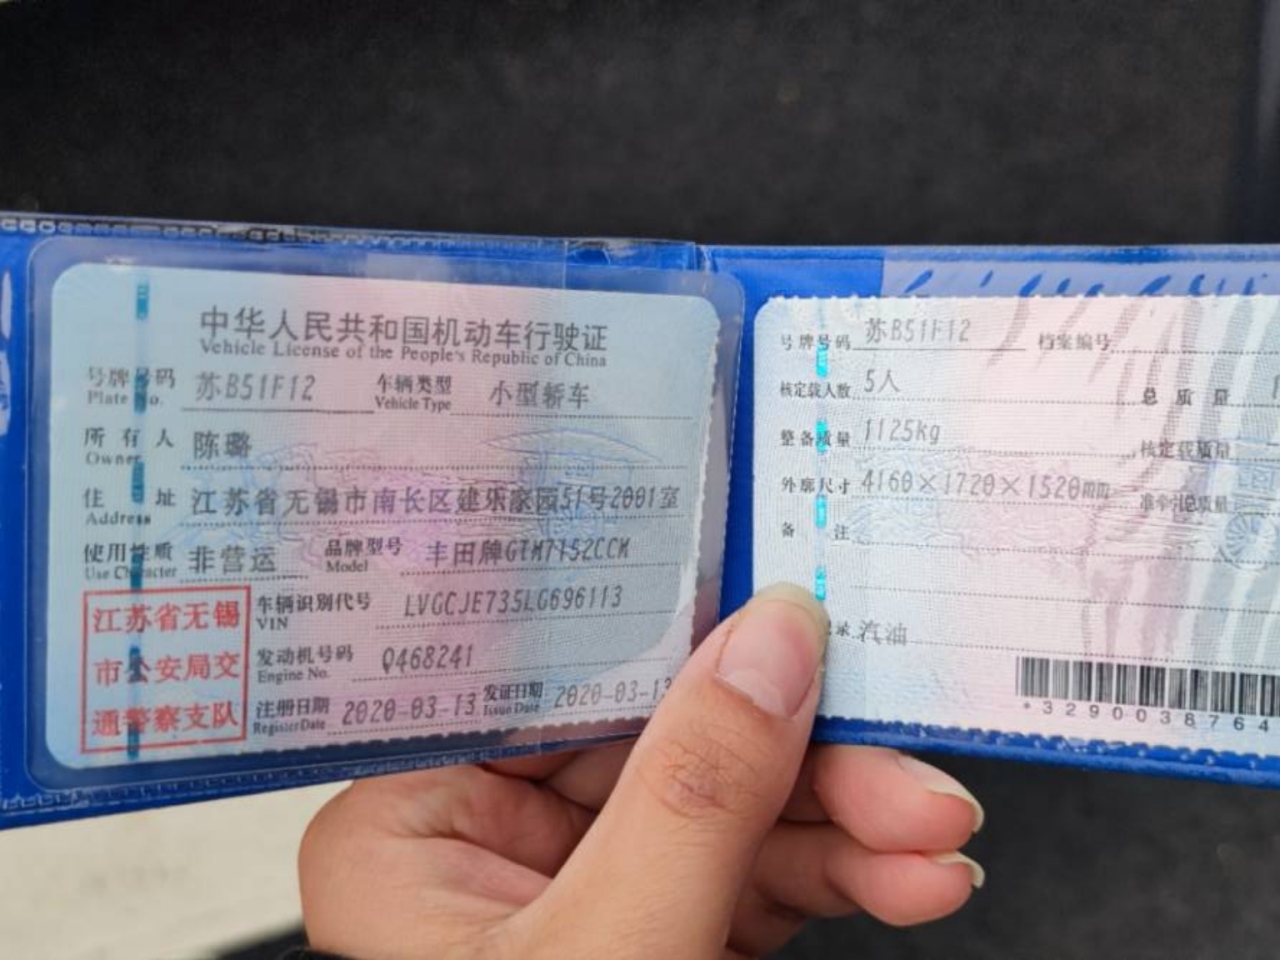 中华人民共和国机动车行驶证
Vehicle License of the People's Republic of China
号牌号码 苏B51F12 车辆类型 小型轿车
Plate No. Vehicle Type
所有人 陈璐
Owner
住址 江苏省无锡市南长区建乐家园51号2001室
Address
使用性质 非营运 品牌型号 丰田牌GTM7152CCM
Use Character Model
江苏省无锡
市公安局交
通警察支队
车辆识别代号 LVGCJE735LG696113
VIN
发动机号码 Q468241
Engine No.
注册日期 2020-03-13 发证日期 2020-03-13
Register Date Issue Date
号牌号码 苏B51F12 档案编号
核定载人数 5人 总质量
整备质量 1125kg 核定载质量
外廓尺寸 4160×1720×1520mm 准牵引总质量
备注
录 汽油
*3290038764